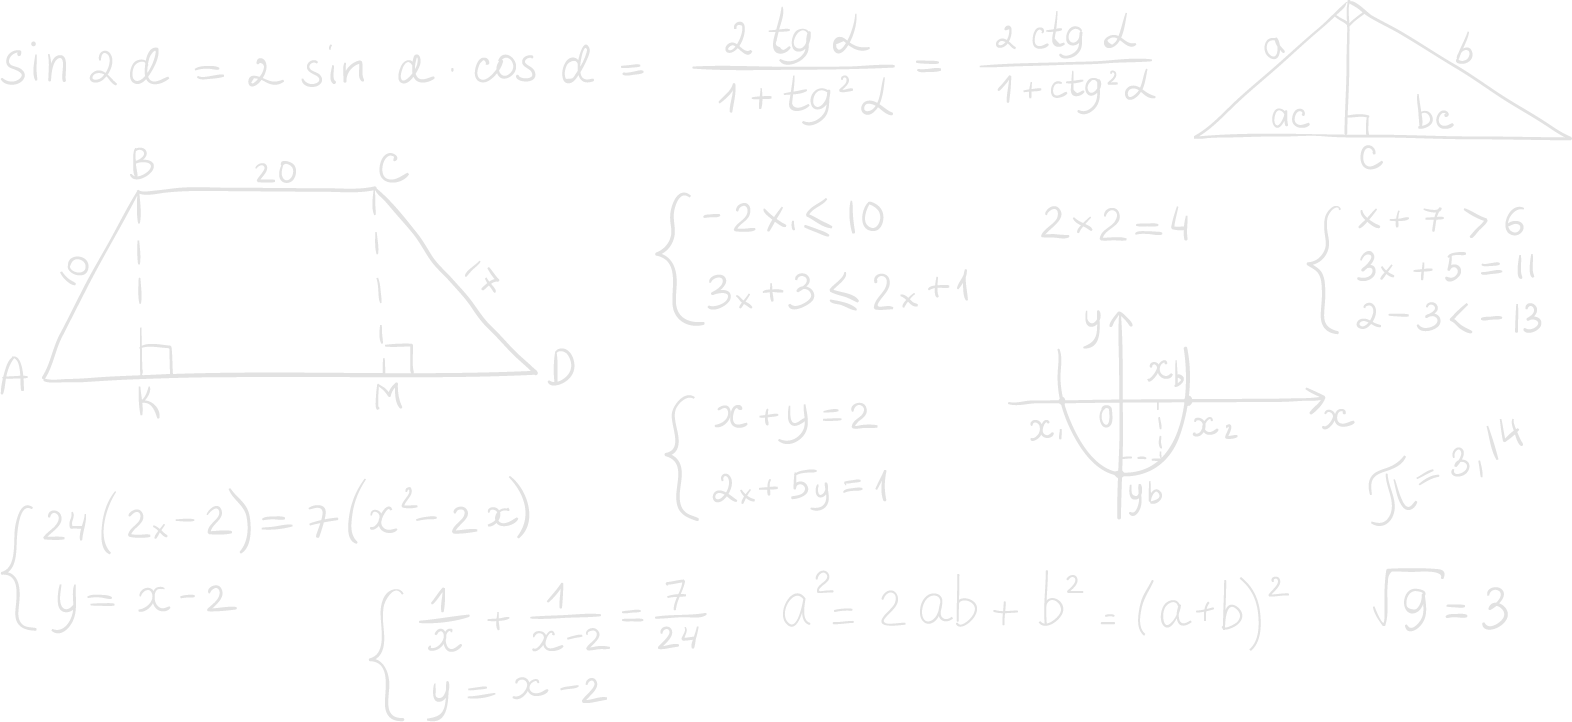 sin 2α = 2 sin α · cos α = 2 tg α / 1 + tg² α = 2 ctg α / 1 + ctg² α
a b
ac bc
c
B 20 C
10 17
A K M D
{ - 2x₁ ≤ 10
3x + 3 ≤ 2x + 1
2 × 2 = 4
{ x + 7 > 6
3x + 5 = 11
2 - 3 < - 13
y
xb
x₁ 0 x₂ x
yb
{ x + y = 2
2x + 5y = 1
π = 3,14
{ 24 (2x - 2) = 7 (x² - 2x)
y = x - 2
{ 1/x + 1/x - 2 = 7/24
y = x - 2
a² = 2ab + b² = (a + b)²
√9 = 3